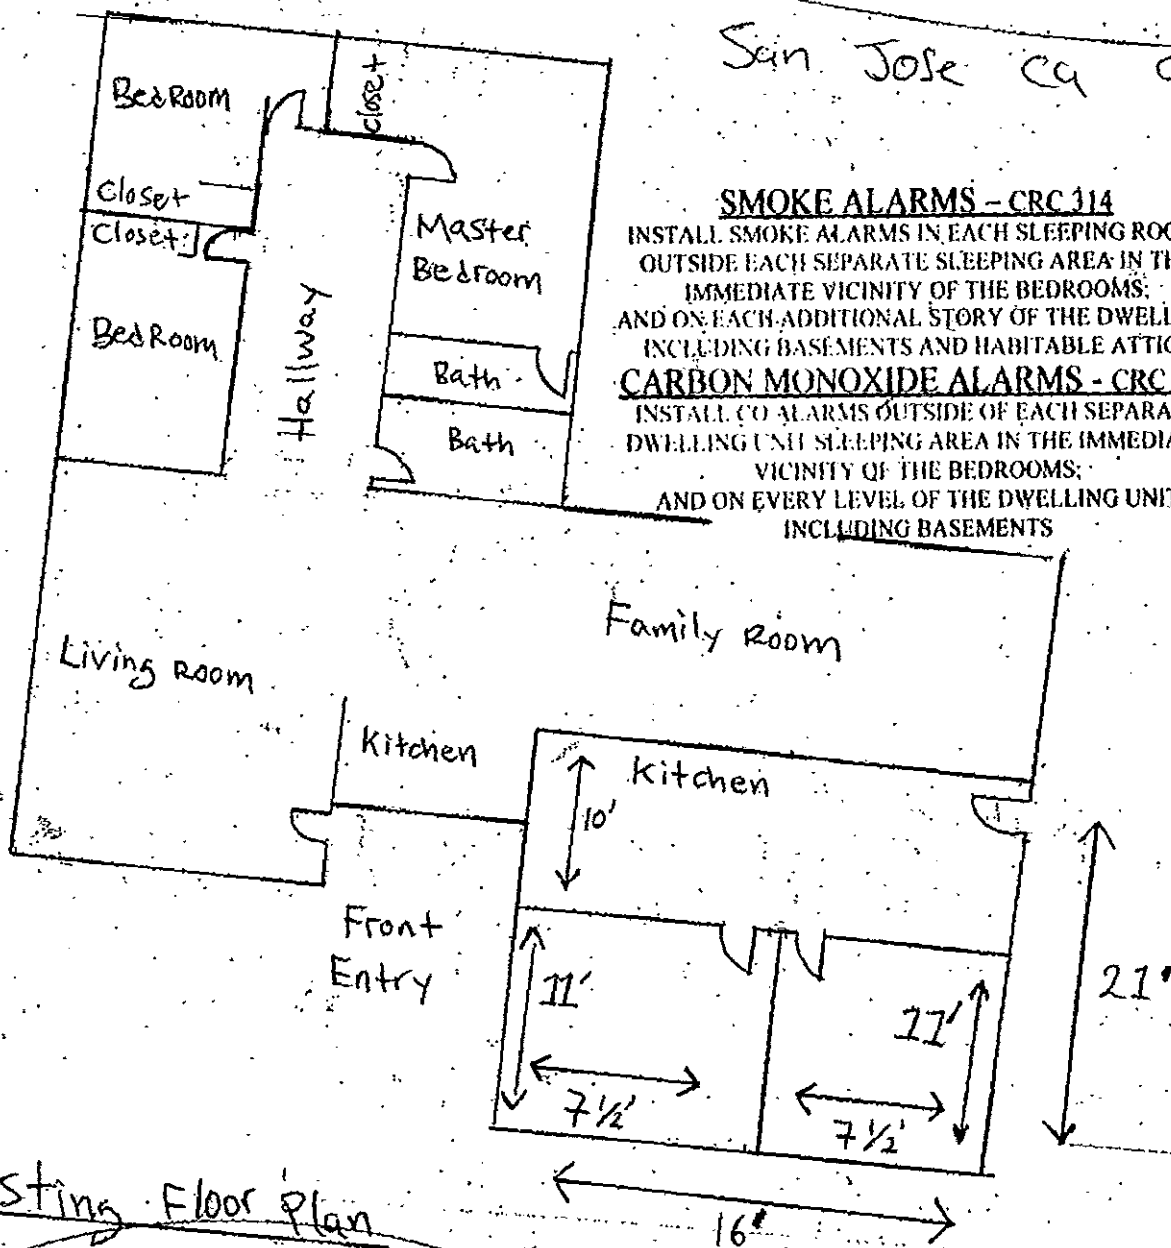 San Jose Ca
BedRoom
Closet
SMOKE ALARMS – CRC 314
INSTALL SMOKE ALARMS IN EACH SLEEPING ROO
OUTSIDE EACH SEPARATE SLEEPING AREA IN TH
IMMEDIATE VICINITY OF THE BEDROOMS;
AND ON EACH ADDITIONAL STORY OF THE DWELL
INCLUDING BASEMENTS AND HABITABLE ATTIC
CARBON MONOXIDE ALARMS - CRC
INSTALL CO ALARMS OUTSIDE OF EACH SEPARA
DWELLING UNIT SLEEPING AREA IN THE IMMEDIA
VICINITY OF THE BEDROOMS;
AND ON EVERY LEVEL OF THE DWELLING UNIT
INCLUDING BASEMENTS
Closet
Closet
Master
Bedroom
BedRoom
Hallway
Bath
Bath
Family Room
Living Room
Kitchen
Kitchen
10'
Front
Entry
11'
11'
21'
7 1/2'
7 1/2'
16'
sting Floor Plan